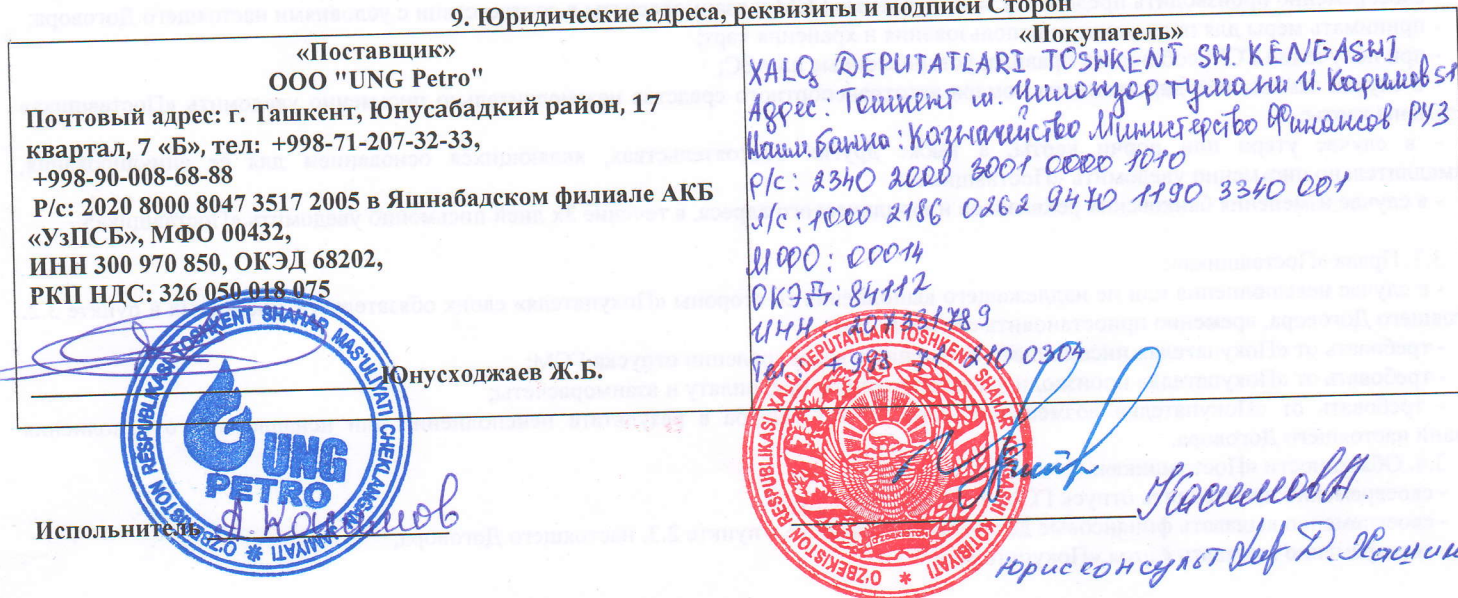 9. Юридические адреса, реквизиты и подписи Сторон
«Поставщик»
ООО "UNG Petro"
Почтовый адрес: г. Ташкент, Юнусабадкий район, 17
квартал, 7 «Б», тел: +998-71-207-32-33,
+998-90-008-68-88
Р/с: 2020 8000 8047 3517 2005 в Яшнабадском филиале АКБ
«УзПСБ», МФО 00432,
ИНН 300 970 850, ОКЭД 68202,
РКП НДС: 326 050 018 075
Юнусходжаев Ж.Б.
O'ZBEKISTON RESPUBLIKASI TOSHKENT SHAHAR MAS'ULIYATI CHEKLANGAN JAMIYATI
UNG
PETRO
Испольнитель
«Покупатель»
XALQ DEPUTATLARI TOSHKENT SH. KENGASHI
Адрес: Тошкент ш. Чилонзор тумани И. Каримов 51
Наим.банка: Казначейство Министерство Финансов РУЗ
Р/с: 2340 2000 3001 0000 1010
Л/с: 1000 2186 0262 9470 1190 3340 001
МФО: 00014
ОКЭД: 84112
ИНН: 207231789
Тел: +998 71 210 0304
O'ZBEKISTON RESPUBLIKASI XALQ DEPUTATLARI TOSHKENT SHAHAR KOTIBIYATI
O'ZBEKISTON
Касимов
юрисконсульт